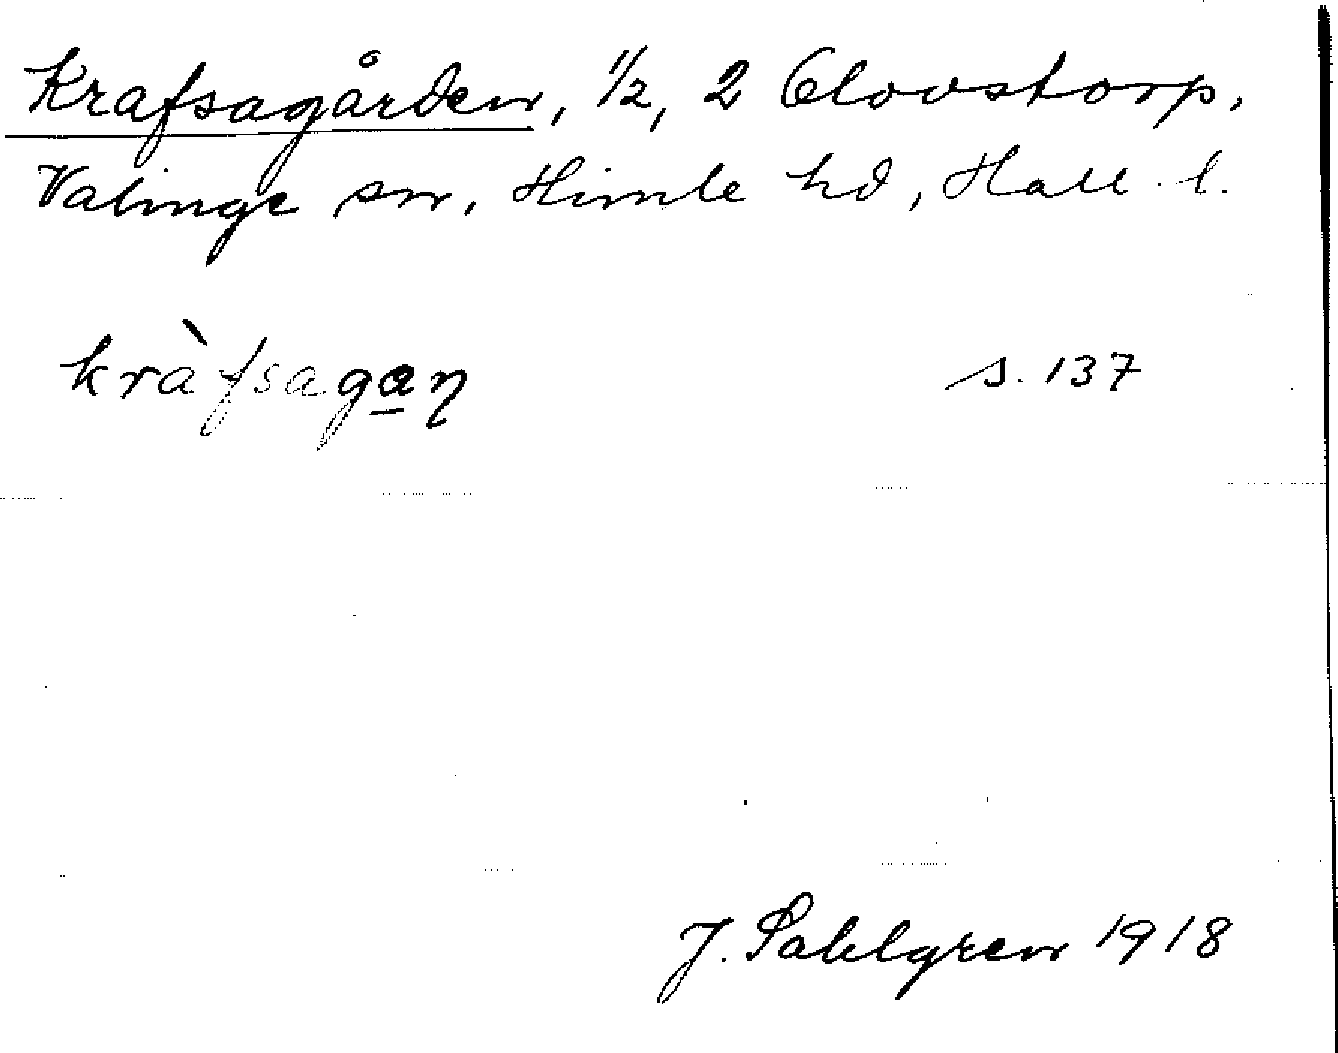 Krafsagården, 1/2, 2 Olovstorp,
Valinge sn, Himle hd, Hall. l.
kràfsagan s. 137
J. Sahlgren 1918